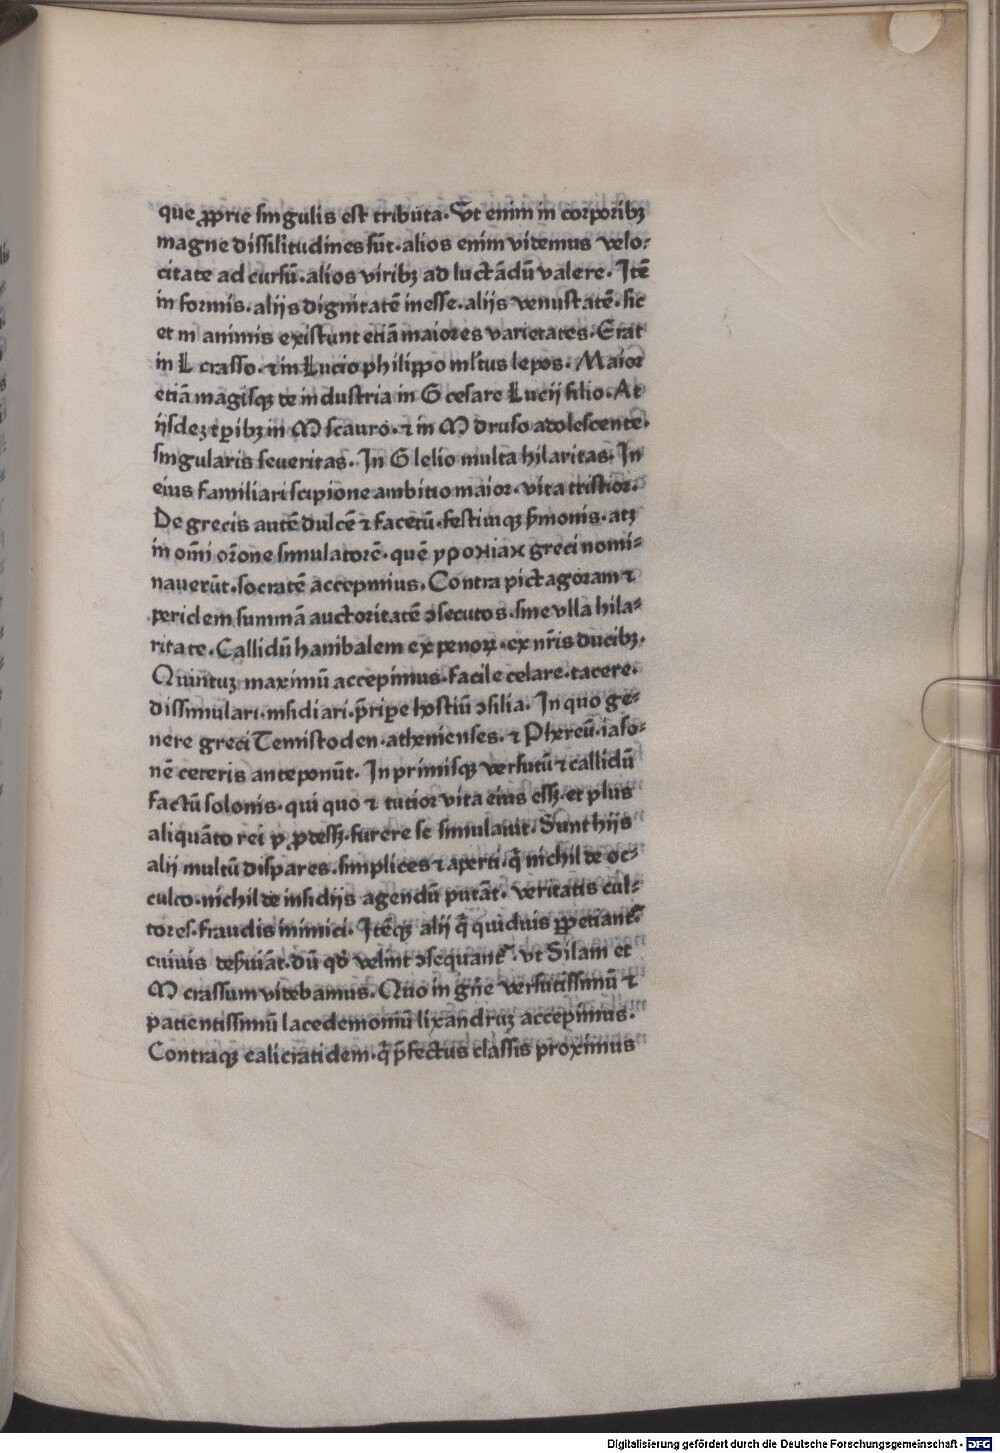 que ꝓprie singulis est tributa. Ut enim in corporibꝫ
magne dissilitudines sūt. alios enim videmus velo-
citate ad cursū. alios viribꝫ ad luctādū valere. Itē
in formis. alijs dignitatē inesse. alijs venustatē. sic
et in animis existunt etiā maiores varietates. Erat
in L crasso. ⁊ in Lucio philippo ml'tus lepos. Maior
etiā magisqꝫ de industria in G cesare Lucij filio. At
ijsdeꝫ tꝑibꝫ in M scauro. ⁊ in M druso adolescente.
singularis severitas. In G lelio multa hilaritas. In
eius familiari scipione ambitio maior. vita tristior.
De grecis autē dulcē ⁊ facetū. festiuiqꝫ s̄monis. atqꝫ
in om̄i or̄one simulatorē. quē γροκιαχ greci nomi-
nauerūt. socratē accepimus. Contra pictagoram ⁊
periclem summā auctoritatē ↄsecutos. sine vlla hila-
ritate. Callidū hanibalem ex penoꝝ. ex nr̄is ducibꝫ.
Quintuꝫ maximū accepimus. facile celare. tacere.
dissimulari. insidiari. p̄ripe hostiū ↄsilia. In quo ge-
nere greci Temistoclen. athenienses. ⁊ Phereū. iaso-
nē ceteris anteponūt. In primisqꝫ versutū ⁊ callidū
factū solonis. qui quo ⁊ tutior vita eius essꝫ. et plus
aliquāto rei p ꝓdessꝫ. furere se simulauit. Sunt hijs
alij multū dispares. simplices ⁊ aperti. q̄ nichil de oc-
culto. nichil de insidijs agendū putāt. veritatis cul-
tores. fraudis inimici. Itēqꝫ alij q̄ quiduis ꝑpetiant᷑
cuiuis deseruiāt. dū qd̓ velint ↄsequant᷑. vt Silam et
M crassum videbamus. Quo in gn̄e versutissimū ⁊
patientissimū lacedemoniū lixandruꝫ accepimus.
Contraqꝫ calicratidem. q̄ p̄fectus classis proximus
Digitalisierung gefördert durch die Deutsche Forschungsgemeinschaft - DFG